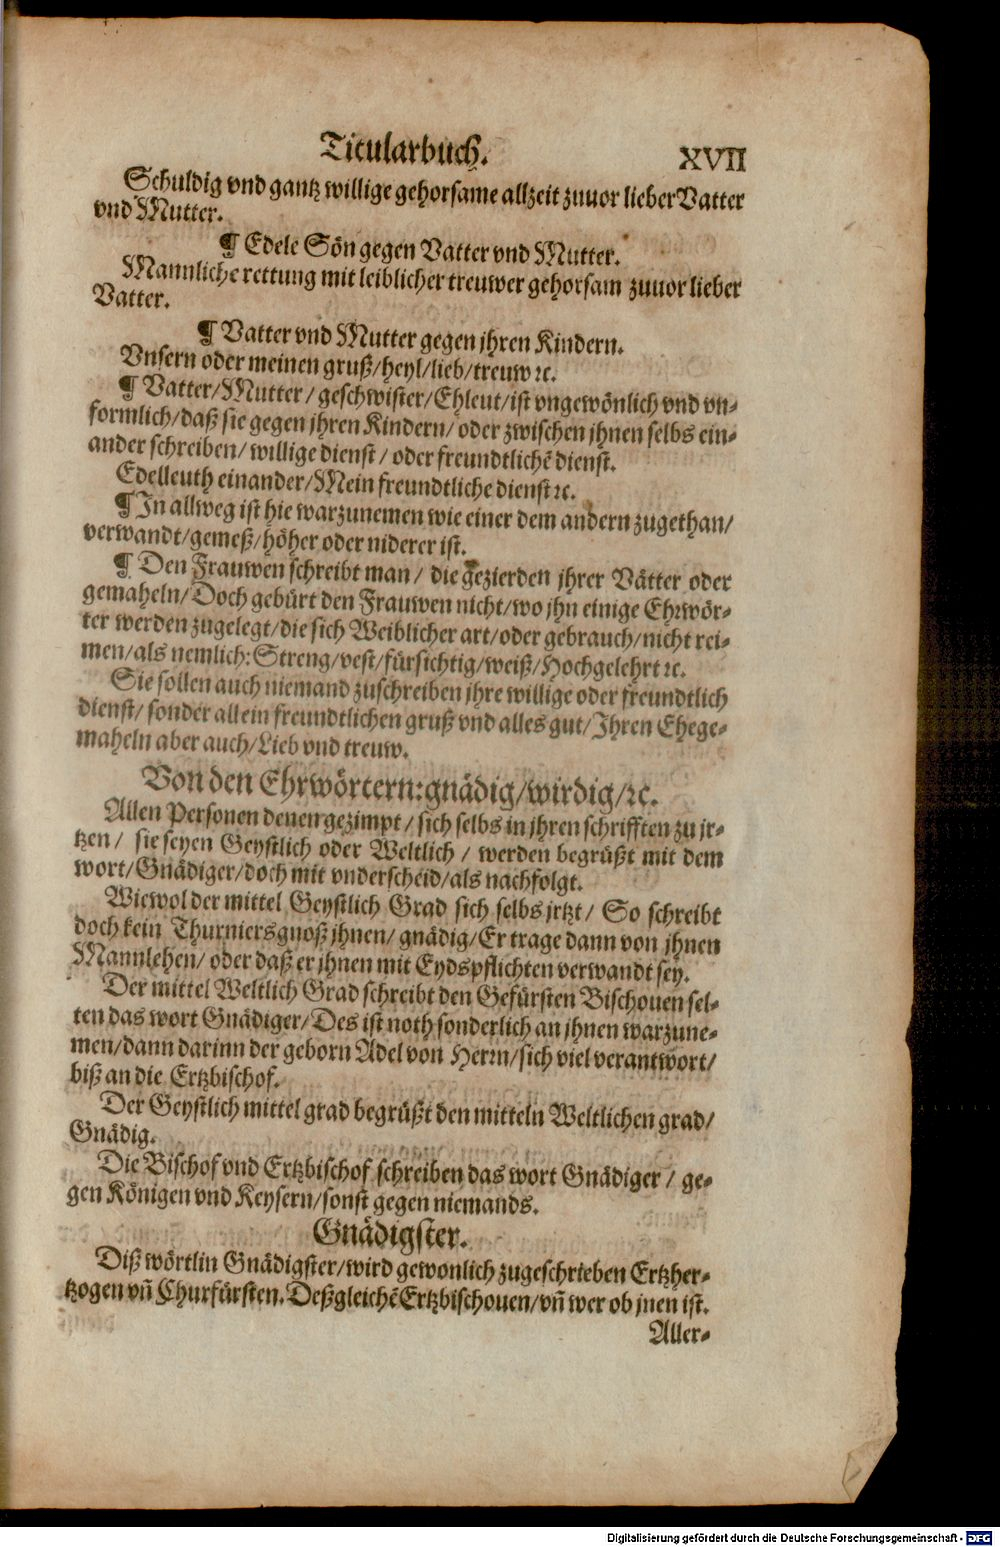 Titularbuch. XVII
Schuldig vnd gantz willige gehorsame allzeit zuuor lieber Vatter
vnd Mutter.
¶ Edele Sön gegen Vatter vnd Mutter.
Mannliche rettung mit leiblicher treuwer gehorsam zuuor lieber
Vatter.
¶ Vatter vnd Mutter gegen jhren Kindern.
Vnsern oder meinen gruß/heyl/lieb/treuw ꝛc.
¶ Vatter/Mutter/ geschwister/Ehleut/ist vngewönlich vnd vn⸗
formlich/daß sie gegen jhren Kindern/ oder zwischen jhnen selbs ein⸗
ander schreiben/ willige dienst/ oder freundtlichē dienst.
Edelleuth einander/Mein freundtliche dienst ꝛc.
¶ In allweg ist hie warzunemen wie einer dem andern zugethan/
verwandt/gemeß/höher oder niderer ist.
¶ Den Frauwen schreibt man/ die gezierden jhrer Vätter oder
gemaheln/Doch gebürt den Frauwen nicht/wo jhn einige Ehrwör⸗
ter werden zugelegt/die sich Weiblicher art/oder gebrauch/nicht rei⸗
men/als nemlich: Streng/vest/fürsichtig/weiß/Hochgelehrt ꝛc.
Sie sollen auch niemand zuschreiben jhre willige oder freundtlich
dienst/ sonder allein freundtlichen gruß vnd alles gut/Ihren Ehege⸗
maheln aber auch/Lieb vnd treuw.
Von den Ehrwörtern: gnädig/wirdig/ꝛc.
Allen Personen denen gezimpt/ sich selbs in jhren schrifften zu jr⸗
tzen/ sie seyen Geystlich oder Weltlich/ werden begrüßt mit dem
wort/Gnädiger/doch mit vnderscheid/als nachfolgt.
Wiewol der mittel Geystlich Grad sich selbs jrtzt/ So schreibt
doch kein Thurniersgnoß jhnen/ gnädig/Er trage dann von jhnen
Mannlehen/ oder daß er jhnen mit Eydspflichten verwandt sey.
Der mittel Weltlich Grad schreibt den Gefürsten Bischouen sel⸗
ten das wort Gnädiger/Des ist noth sonderlich an jhnen warzune⸗
men/dann darinn der geborn Adel von Herrn/sich viel verantwort/
biß an die Ertzbischof.
Der Geystlich mittel grad begrüßt den mitteln Weltlichen grad/
Gnädig.
Die Bischof vnd Ertzbischof schreiben das wort Gnädiger/ ge⸗
gen Königen vnd Keysern/sonst gegen niemands.
Gnädigster.
Diß wörtlin Gnädigster/wird gewonlich zugeschrieben Ertzher⸗
tzogen vñ Churfürsten. Deßgleichē Ertzbischouen/vñ wer ob jnen ist.
Aller⸗
Digitalisierung gefördert durch die Deutsche Forschungsgemeinschaft - DFG